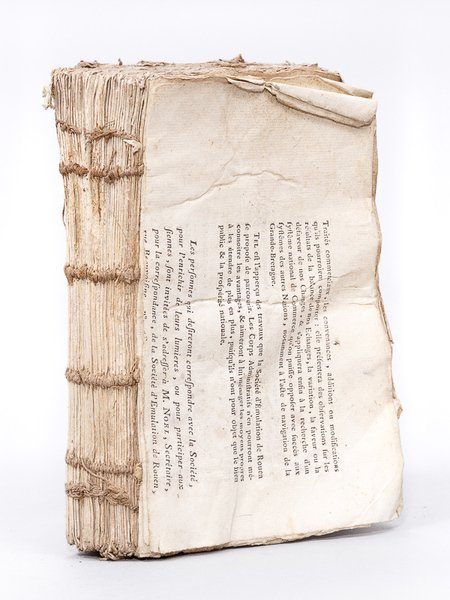 4
Traités commerciaux, les convenances, additions ou modifications
qu'ils pourroient comporter : elle présentera des observations sur les
résultats de la balance de nos Echanges, la variation, la faveur ou la
défaveur de nos Changes, & s'appliquera enfin à la recherche d'un
systême national de Commerce qu'on puisse opposer avec succès aux
systêmes des autres Nations, notamment à l'acte de navigation de la
Grande-Bretagne.
TEL est l'apperçu des travaux que la Société d'Emulation de Rouen
se propose de parcourir. Les Corps Administratifs n'en pourront mé-
connoître les avantages, & aimeront à lui ménager les moyens propres
à les étendre de plus en plus, puisqu'ils n'ont pour objet que le bien
public & la prospérité nationale.
Les personnes qui desireront correspondre avec la Société,
pour l'enrichir de leurs lumieres, ou pour participer aux
siennes, sont invitées de s'adresser à M. NOEL, Secrétaire,
pour la correspondance, de la Société d'Emulation de Rouen,